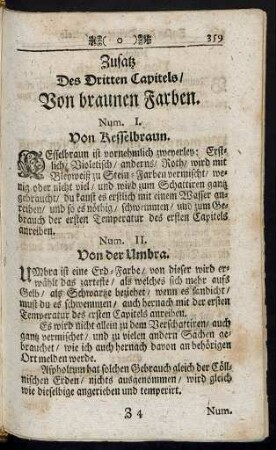 ( o ) 359
Zusatz
Des Dritten Capitels/
Von braunen Farben.
Num. I.
Von Kesselbraun.
KEsselbraun ist vornehmlich zweyerley: Erst-
lich/ Violetisch/ anders/ Roth/ wird mit
Bleyweiß zu Stein-Farben vermischt/ we-
nig oder nicht viel/ und wird zum Schattiren gantz
gebraucht/ du kanst es erstlich mit einem Wasser an-
reiben/ und so es nöthig/ schwemmen/ und zum Ge-
brauch der ersten Temperatur des ersten Capitels
anreiben.
Num. II.
Von der Umbra.
UMbra ist eine Erd-Farbe/ von dieser wird er-
wählt das zarteste/ als welches sich mehr aufs
Gelb/ als Schwartze beziehet/ wenn es sandicht/
must du es schwemmen/ auch hernach mit der ersten
Temperatur des ersten Capitels anreiben.
Es wird nicht allein zu dem Verschattiren/ auch
gantz vermischet/ und zu vielen andern Sachen ge-
brauchet/ wie ich auch hernach davon an behörigen
Ort melden werde.
Aspholtum hat solchen Gebrauch gleich der Cöll-
nischen Erden/ nichts ausgenommen/ wird gleich
wie dieselbige angerieben und temperirt.
Z 4 Num.